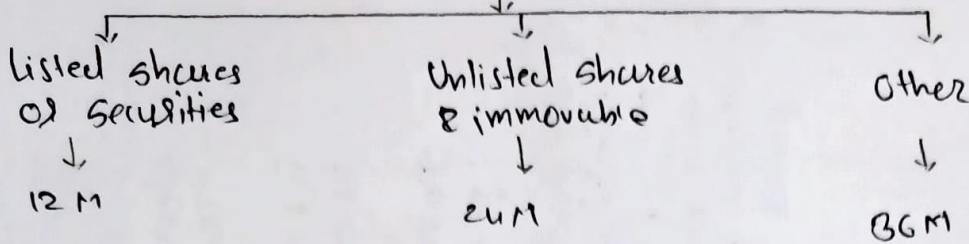 Listed shares
or securities
12 M
Unlisted shares
& immovable
24 M
Other
36 M